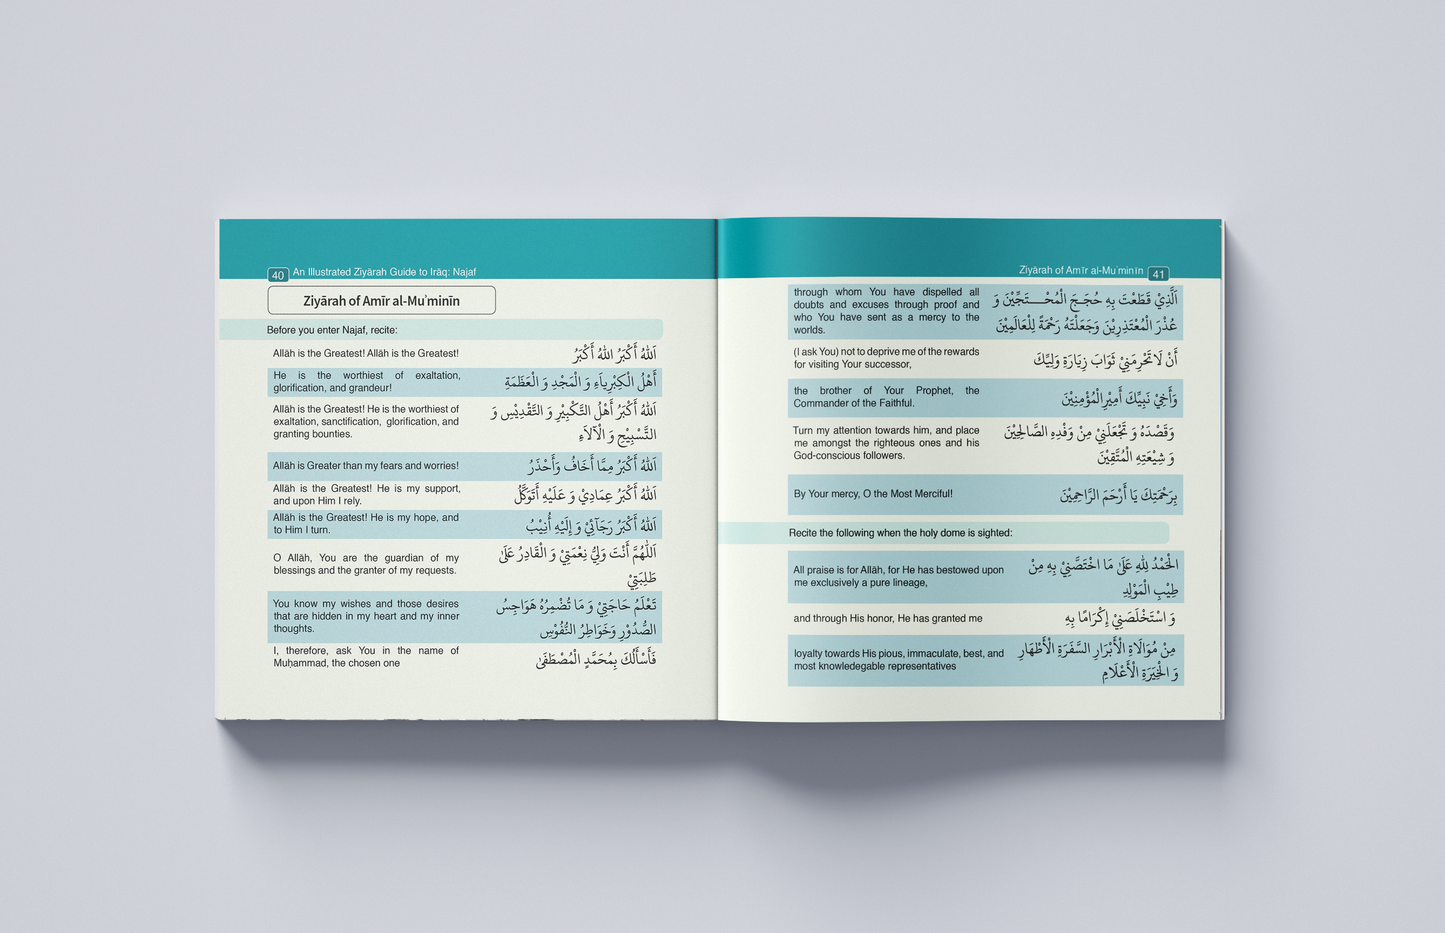 40 An Illustrated Ziyārah Guide to Irāq: Najaf
Ziyārah of Amīr al-Muʾminīn
Before you enter Najaf, recite:
Allāh is the Greatest! Allāh is the Greatest!
اَللّٰهُ أَكْبَرُ اللّٰهُ أَكْبَرُ
He is the worthiest of exaltation,
glorification, and grandeur!
أَهْلُ الْكِبْرِيَاءِ وَ الْمَجْدِ وَ الْعَظَمَةِ
Allāh is the Greatest! He is the worthiest of
exaltation, sanctification, glorification, and
granting bounties.
اَللّٰهُ أَكْبَرُ أَهْلُ التَّكْبِيْرِ وَ التَّقْدِيْسِ وَ
التَّسْبِيْحِ وَ الْآلَاءِ
Allāh is Greater than my fears and worries!
اَللّٰهُ أَكْبَرُ مِمَّا أَخَافُ وَأَحْذَرُ
Allāh is the Greatest! He is my support,
and upon Him I rely.
اَللّٰهُ أَكْبَرُ عِمَادِيْ وَ عَلَيْهِ أَتَوَكَّلُ
Allāh is the Greatest! He is my hope, and
to Him I turn.
اَللّٰهُ أَكْبَرُ رَجَآئِيْ وَ إِلَيْهِ أُنِيْبُ
O Allāh, You are the guardian of my
blessings and the granter of my requests.
اَللّٰهُمَّ أَنْتَ وَلِيُّ نِعْمَتِيْ وَ الْقَادِرُ عَلَىٰ
طَلِبَتِيْ
You know my wishes and those desires
that are hidden in my heart and my inner
thoughts.
تَعْلَمُ حَاجَتِيْ وَ مَا تُضْمِرُهُ هَوَاجِسُ
الصُّدُوْرِ وَخَوَاطِرُ النُّفُوْسِ
I, therefore, ask You in the name of
Muḥammad, the chosen one
فَأَسْأَلُكَ بِمُحَمَّدٍ الْمُصْطَفَىٰ
Ziyārah of Amīr al-Muʾminīn 41
through whom You have dispelled all
doubts and excuses through proof and
who You have sent as a mercy to the
worlds.
اَلَّذِيْ قَطَعْتَ بِهِ حُجَجَ الْمُحْـــتَجِّيْنَ وَ
عُذْرَ الْمُعْتَذِرِيْنَ وَجَعَلْتَهُ رَحْمَةً لِلْعَالَمِيْنَ
(I ask You) not to deprive me of the rewards
for visiting Your successor,
أَنْ لَا تَحْرِمَنِيْ ثَوَابَ زِيَارَةِ وَلِيِّكَ
the brother of Your Prophet, the
Commander of the Faithful.
وَأَخِيْ نَبِيِّكَ أَمِيْرِالْمُؤْمِنِيْنَ
Turn my attention towards him, and place
me amongst the righteous ones and his
God-conscious followers.
وَقَصْدَهُ وَ تَجْعَلَنِيْ مِنْ وَفْدِهِ الصَّالِحِيْنَ
وَ شِيْعَتِهِ الْمُتَّقِيْنَ
By Your mercy, O the Most Merciful!
بِرَحْمَتِكَ يَا أَرْحَمَ الرَّاحِمِيْنَ
Recite the following when the holy dome is sighted:
All praise is for Allāh, for He has bestowed upon
me exclusively a pure lineage,
الْحَمْدُ لِلّٰهِ عَلَىٰ مَا اخْتَصَّنِيْ بِهِ مِنْ
طِيْبِ الْمَوْلِدِ
and through His honor, He has granted me
وَ اسْتَخْلَصَنِيْ إِكْرَامًا بِهِ
loyalty towards His pious, immaculate, best, and
most knowledegable representatives
مِنْ مُوَالَاةِ الْأَبْرَارِ السَّفَرَةِ الْأَطْهَارِ
وَ الْخِيَرَةِ الْأَعْلَامِ